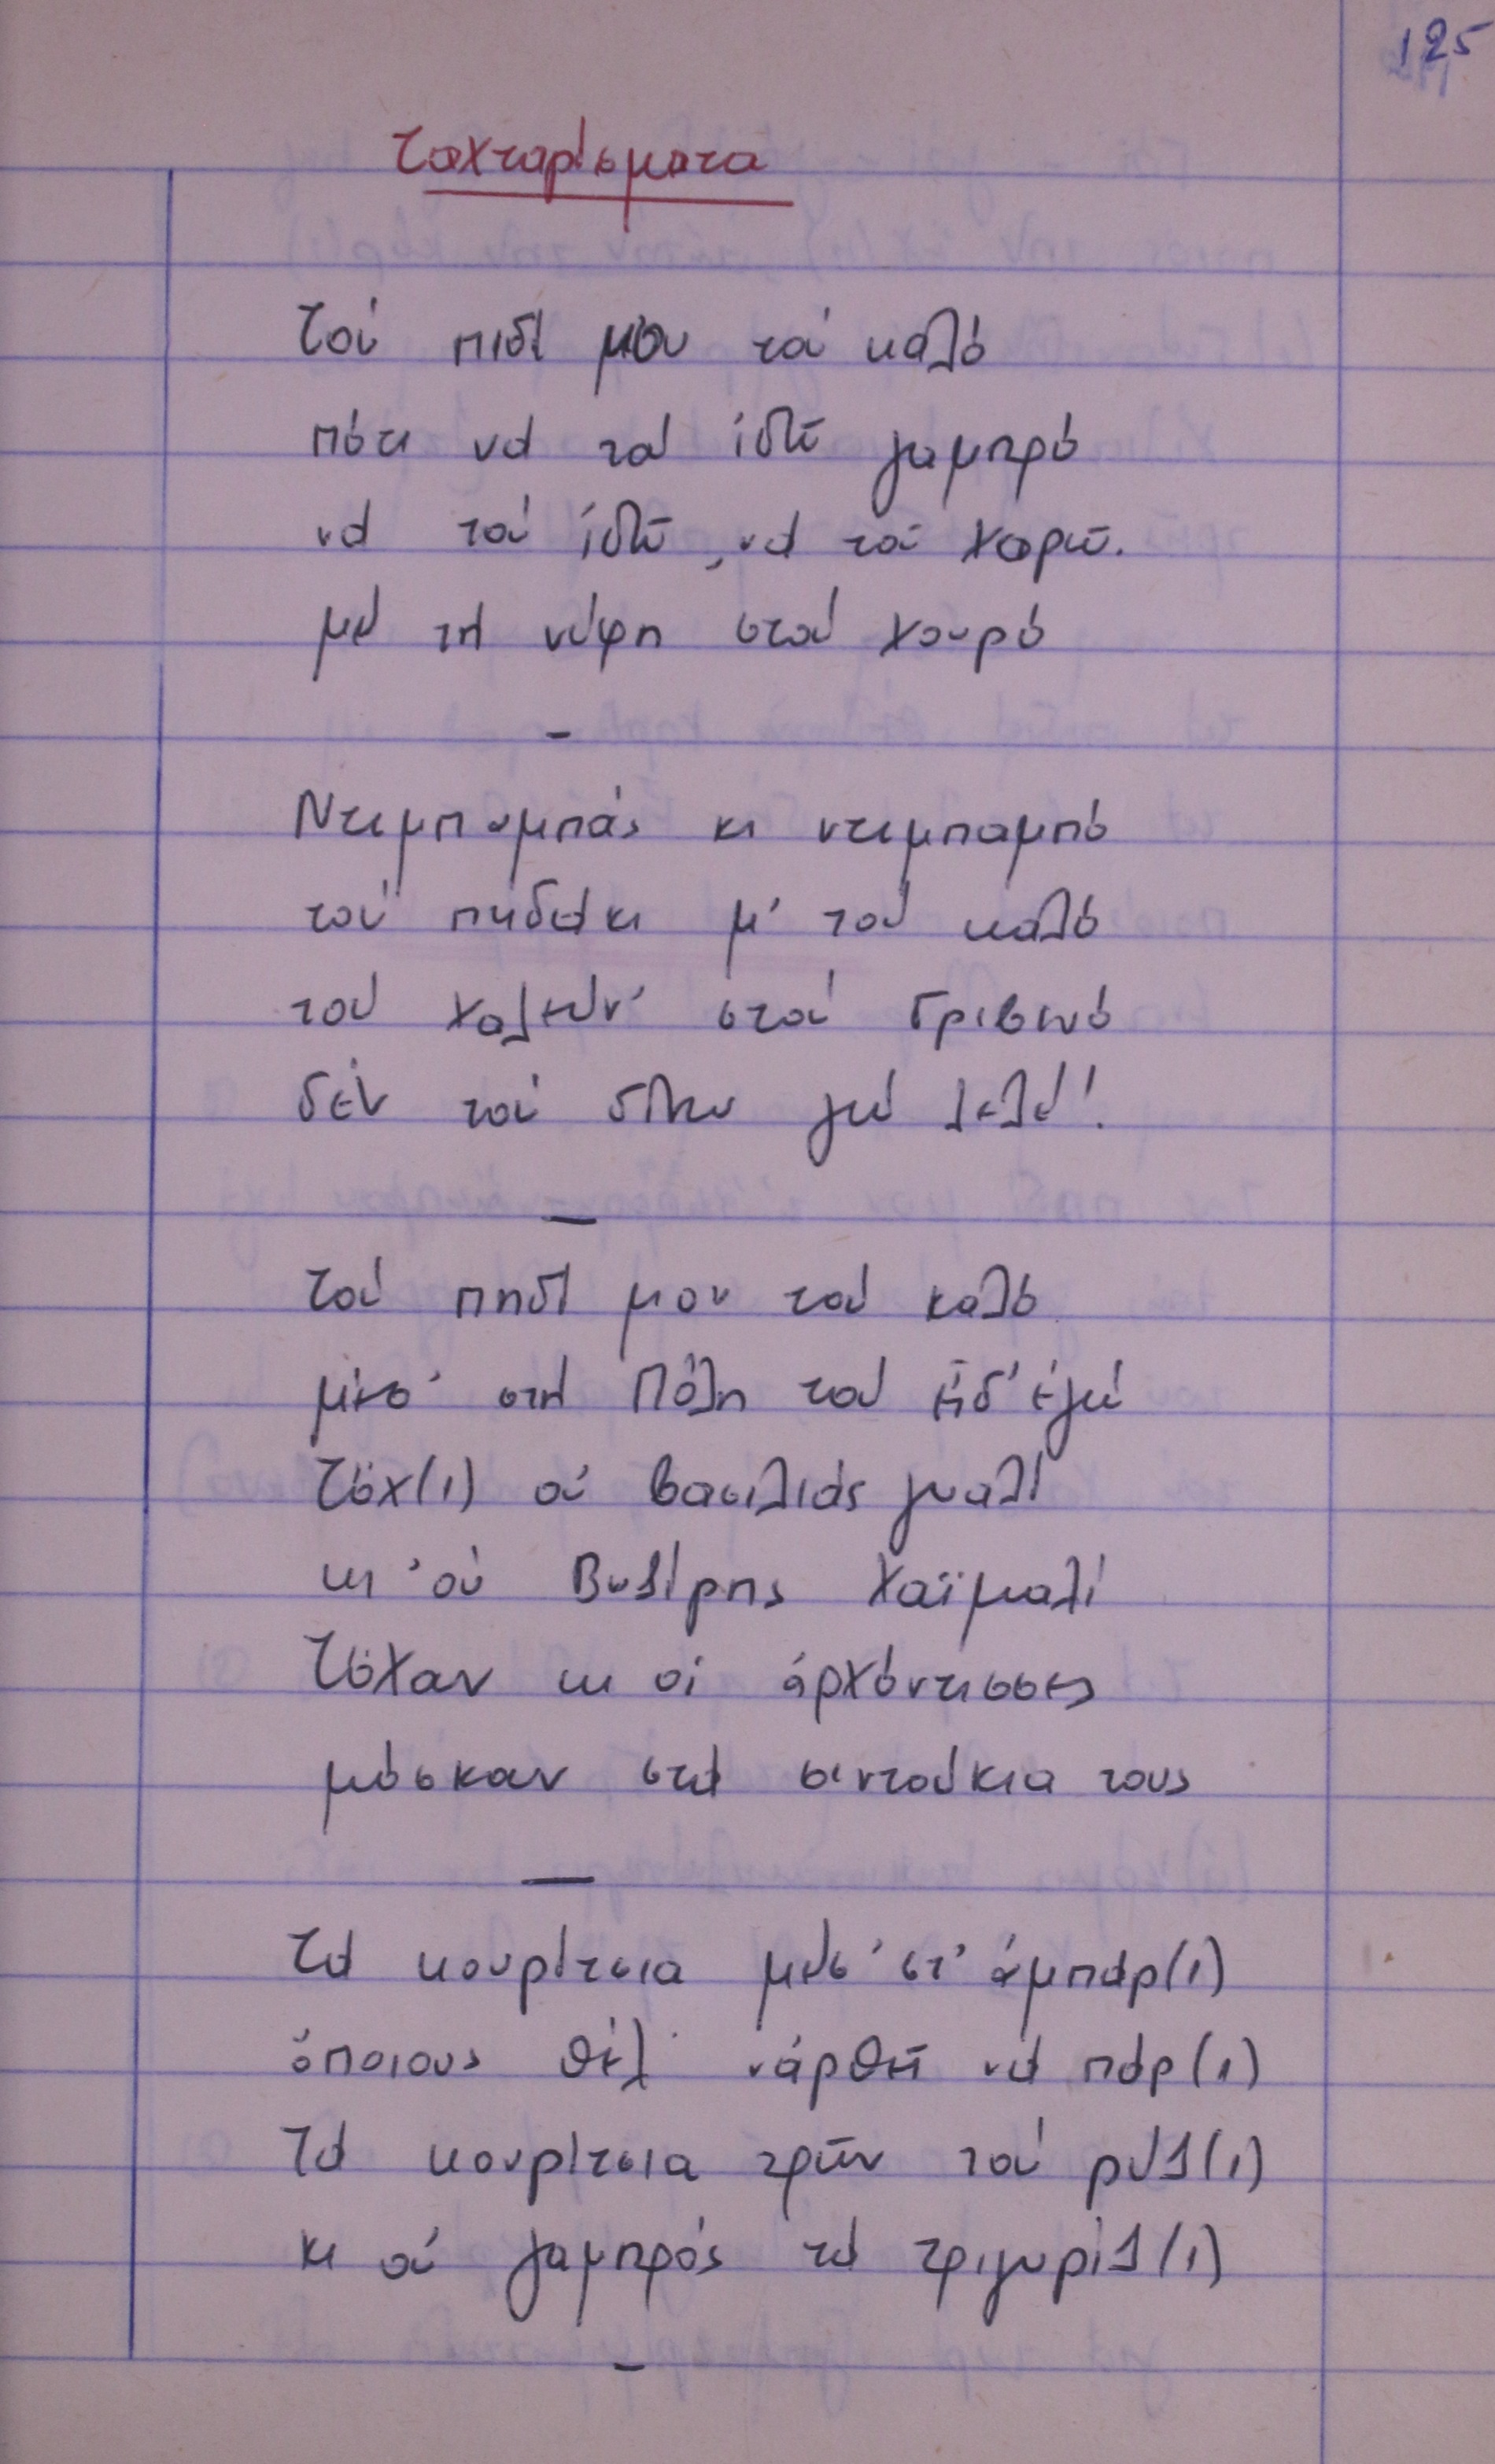 125
Ταχταρίσματα
Τού πιδί μου τού καλό
πότι νά τού ἰδῶ γαμπρό
νά τού ἰδῶ, νά τού χαρῶ.
μέ τή νύφη στού χουρό
-
Ντιμπαμπάς κι ντιμπαμπό
τού πιδάκι μ' τού καλό
τού χαλεύν' στού Γριβινό
δέν τού δίνου γώ λελέ!
-
Τού πηδί μου τού καλό
μέσ' στή Πόλη τού εἶδ' ἐγώ
Τὄχ(ι) οὑ βασιλιάς γυαλί
κι' οὑ Βυζίρης χαϊμαλί
Τὄχαν κι οἱ ἀρχόντισσες
μόσκαν στά σιντούκια τους
-
Τά κουρίτσια μέσ' στ' ἀμπάρ(ι)
ὅποιους θέλ' νάρθῆ νά πάρ(ι)
Τά κουρίτσια τρῶν τού ρύζ(ι)
κι οὑ γαμπρός τά τριγυρίζ(ι)
-